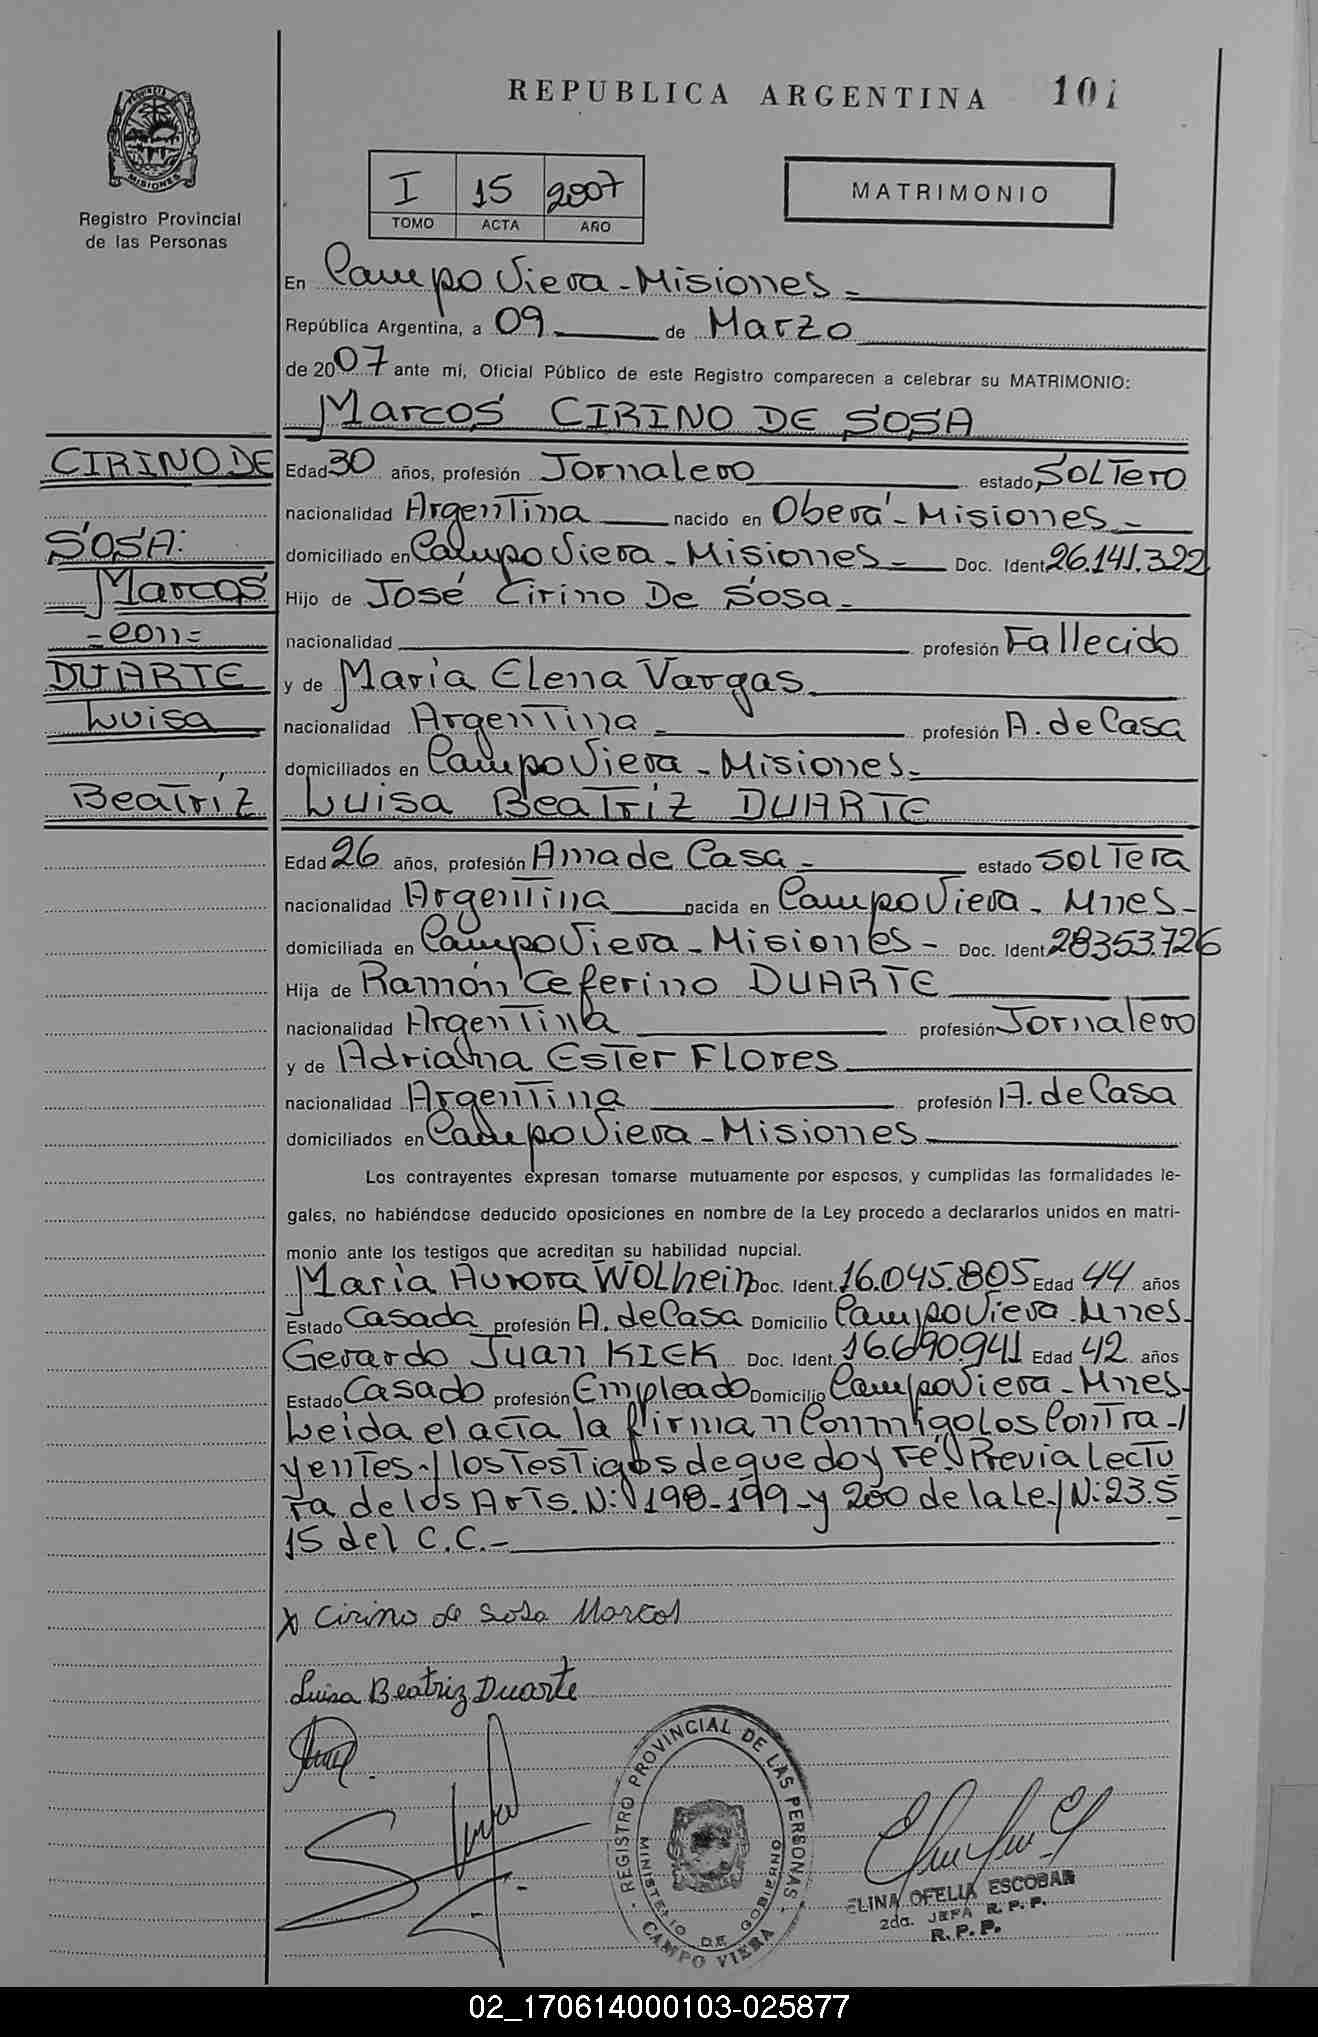 REPUBLICA ARGENTINA 101
PROVINCIA DE MISIONES
Registro Provincial
de las Personas
I 15 2007
TOMO ACTA AÑO
MATRIMONIO
En Campo Viera - Misiones -
República Argentina, a 09 de Marzo
de 2007 ante mí, Oficial Público de este Registro comparecen a celebrar su MATRIMONIO:
Marcos CIRINO DE SOSA
CIRINO DE
SOSA:
Marcos
=con=
DUARTE
Luisa
Beatríz
Edad 30 años, profesión Jornalero estado SOLTero
nacionalidad Argentina nacido en Oberá - Misiones -
domiciliado en Campo Viera - Misiones - Doc. Ident. 26.141.322
Hijo de José Cirino De Sosa -
nacionalidad profesión Fallecido
y de María Elena Vargas
nacionalidad Argentina profesión A. de Casa
domiciliados en Campo Viera - Misiones -
Luisa Beatríz DUARTE
Edad 26 años, profesión Ama de Casa - estado SOLTera
nacionalidad Argentina nacida en Campo Viera - Mnes -
domiciliada en Campo Viera - Misiones - Doc. Ident. 28353.726
Hija de Ramón Ceferino DUARTE
nacionalidad Argentina profesión Jornalero
y de Adriana Ester Flores
nacionalidad Argentina profesión A. de Casa
domiciliados en Campo Viera - Misiones
Los contrayentes expresan tomarse mutuamente por esposos, y cumplidas las formalidades le-
gales, no habiéndose deducido oposiciones en nombre de la Ley procedo a declararlos unidos en matri-
monio ante los testigos que acreditan su habilidad nupcial.
María Aurora WOLhein Doc. Ident. 16.045.805 Edad 44 años
Estado Casada profesión A. de Casa Domicilio Campo Viera - Mnes -
Gerardo Juan KIEK Doc. Ident. 16.690.941 Edad 42 años
Estado Casado profesión Empleado Domicilio Campo Viera - Mnes -
Leida el acta la firman Conmigo los Contra-/
yentes-/ los Testigos de que doy Fé. Previa Lectu
ra de los Arts. N: 198-199-y 200 de la Le/ N: 23.5
15 del C.C.-
X Cirino de Sosa Marcos
Luisa Beatriz Duarte
REGISTRO PROVINCIAL DE LAS PERSONAS
MINISTERIO DE GOBIERNO
CAMPO VIERA
ELINA OFELIA ESCOBAR
2da. JEFA R.P.P.
R.P.P.
02_170614000103-025877